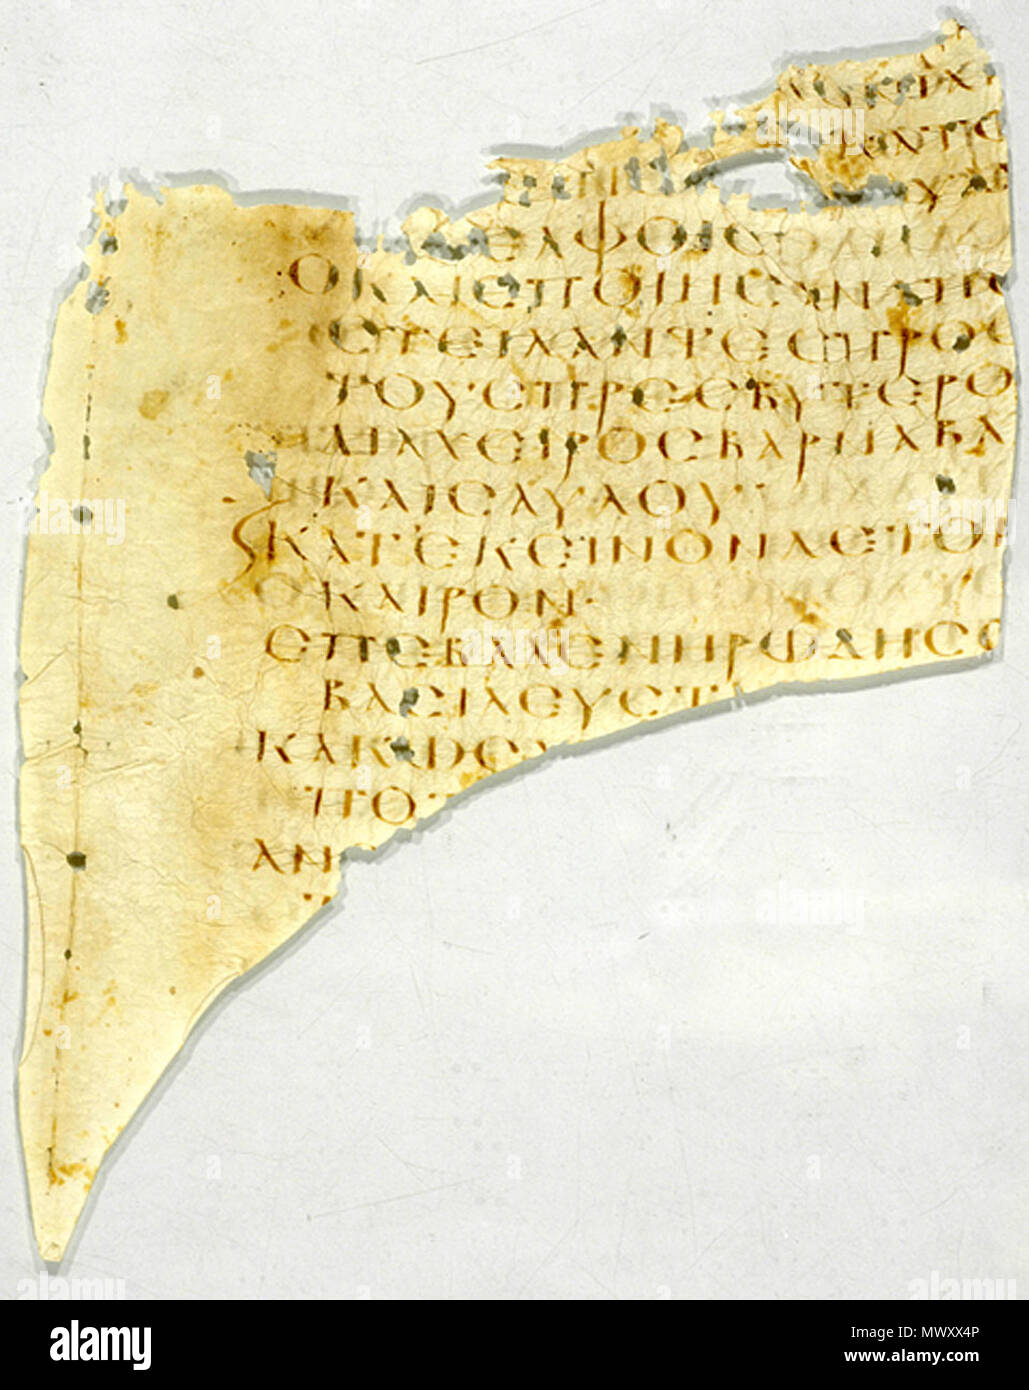 ΕΛΦΟΙΣ
ΟΚΑΙΕΠΟΙΗΣΑΝΑΠΟ
ΣΤΕΙΛΑΝΤΕΣΠΡΟΣ
ΤΟΥΣΠΡΕΣΒΥΤΕΡΟ
ΔΙΑΧΕΙΡΟΣΒΑΡΝΑΒΑ
ΚΑΙΣΑΥΛΟΥ
ΚΑΤΕΚΕΙΝΟΝΔΕΤΟΝ
ΚΑΙΡΟΝ·
ΕΠΕΒΑΛΕΝΗΡΩΔΗΣΟ
ΒΑΣΙΛΕΥΣΤ
ΚΑΚΩΣ
ΑΠΟΤ
ΑΝ
alamy
Image ID: MWXX4P
www.alamy.com